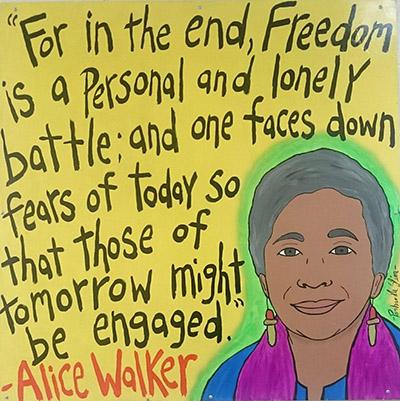 "For in the end, Freedom
is a Personal and lonely
battle; and one faces down
fears of today so
that those of
tomorrow might
be engaged."
-Alice Walker